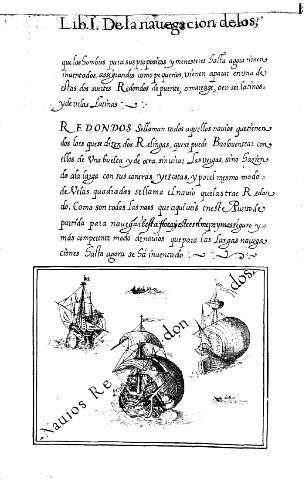 Lib.I. De la nauegacion delos,
que los hombres para sus propositos y menesteres hasta agora tienen
inuentados, assi grandes como pequeños, vienen a parar en una de
estas dos suertes Redondos de puente,
y de velas Latinas.
REDONDOS Se llaman todos aquellos nauios que tienen
dos lo que se dizen dos Relingas, que se puede Barloventear con
ellos de una buelta y de otra, sin quitar las vergas, sino hazien
do ala larga con sus contras y escotas, y por el mesmo modo
de Velas quadradas se llama el nauio que las trae Redon
do. Como son todas las naos que
partida para nauegar y mas seguro y
mas competente modo de nauios que para las largas nauega
ciones hasta agora se há inuentado.
Nauios Redondos.